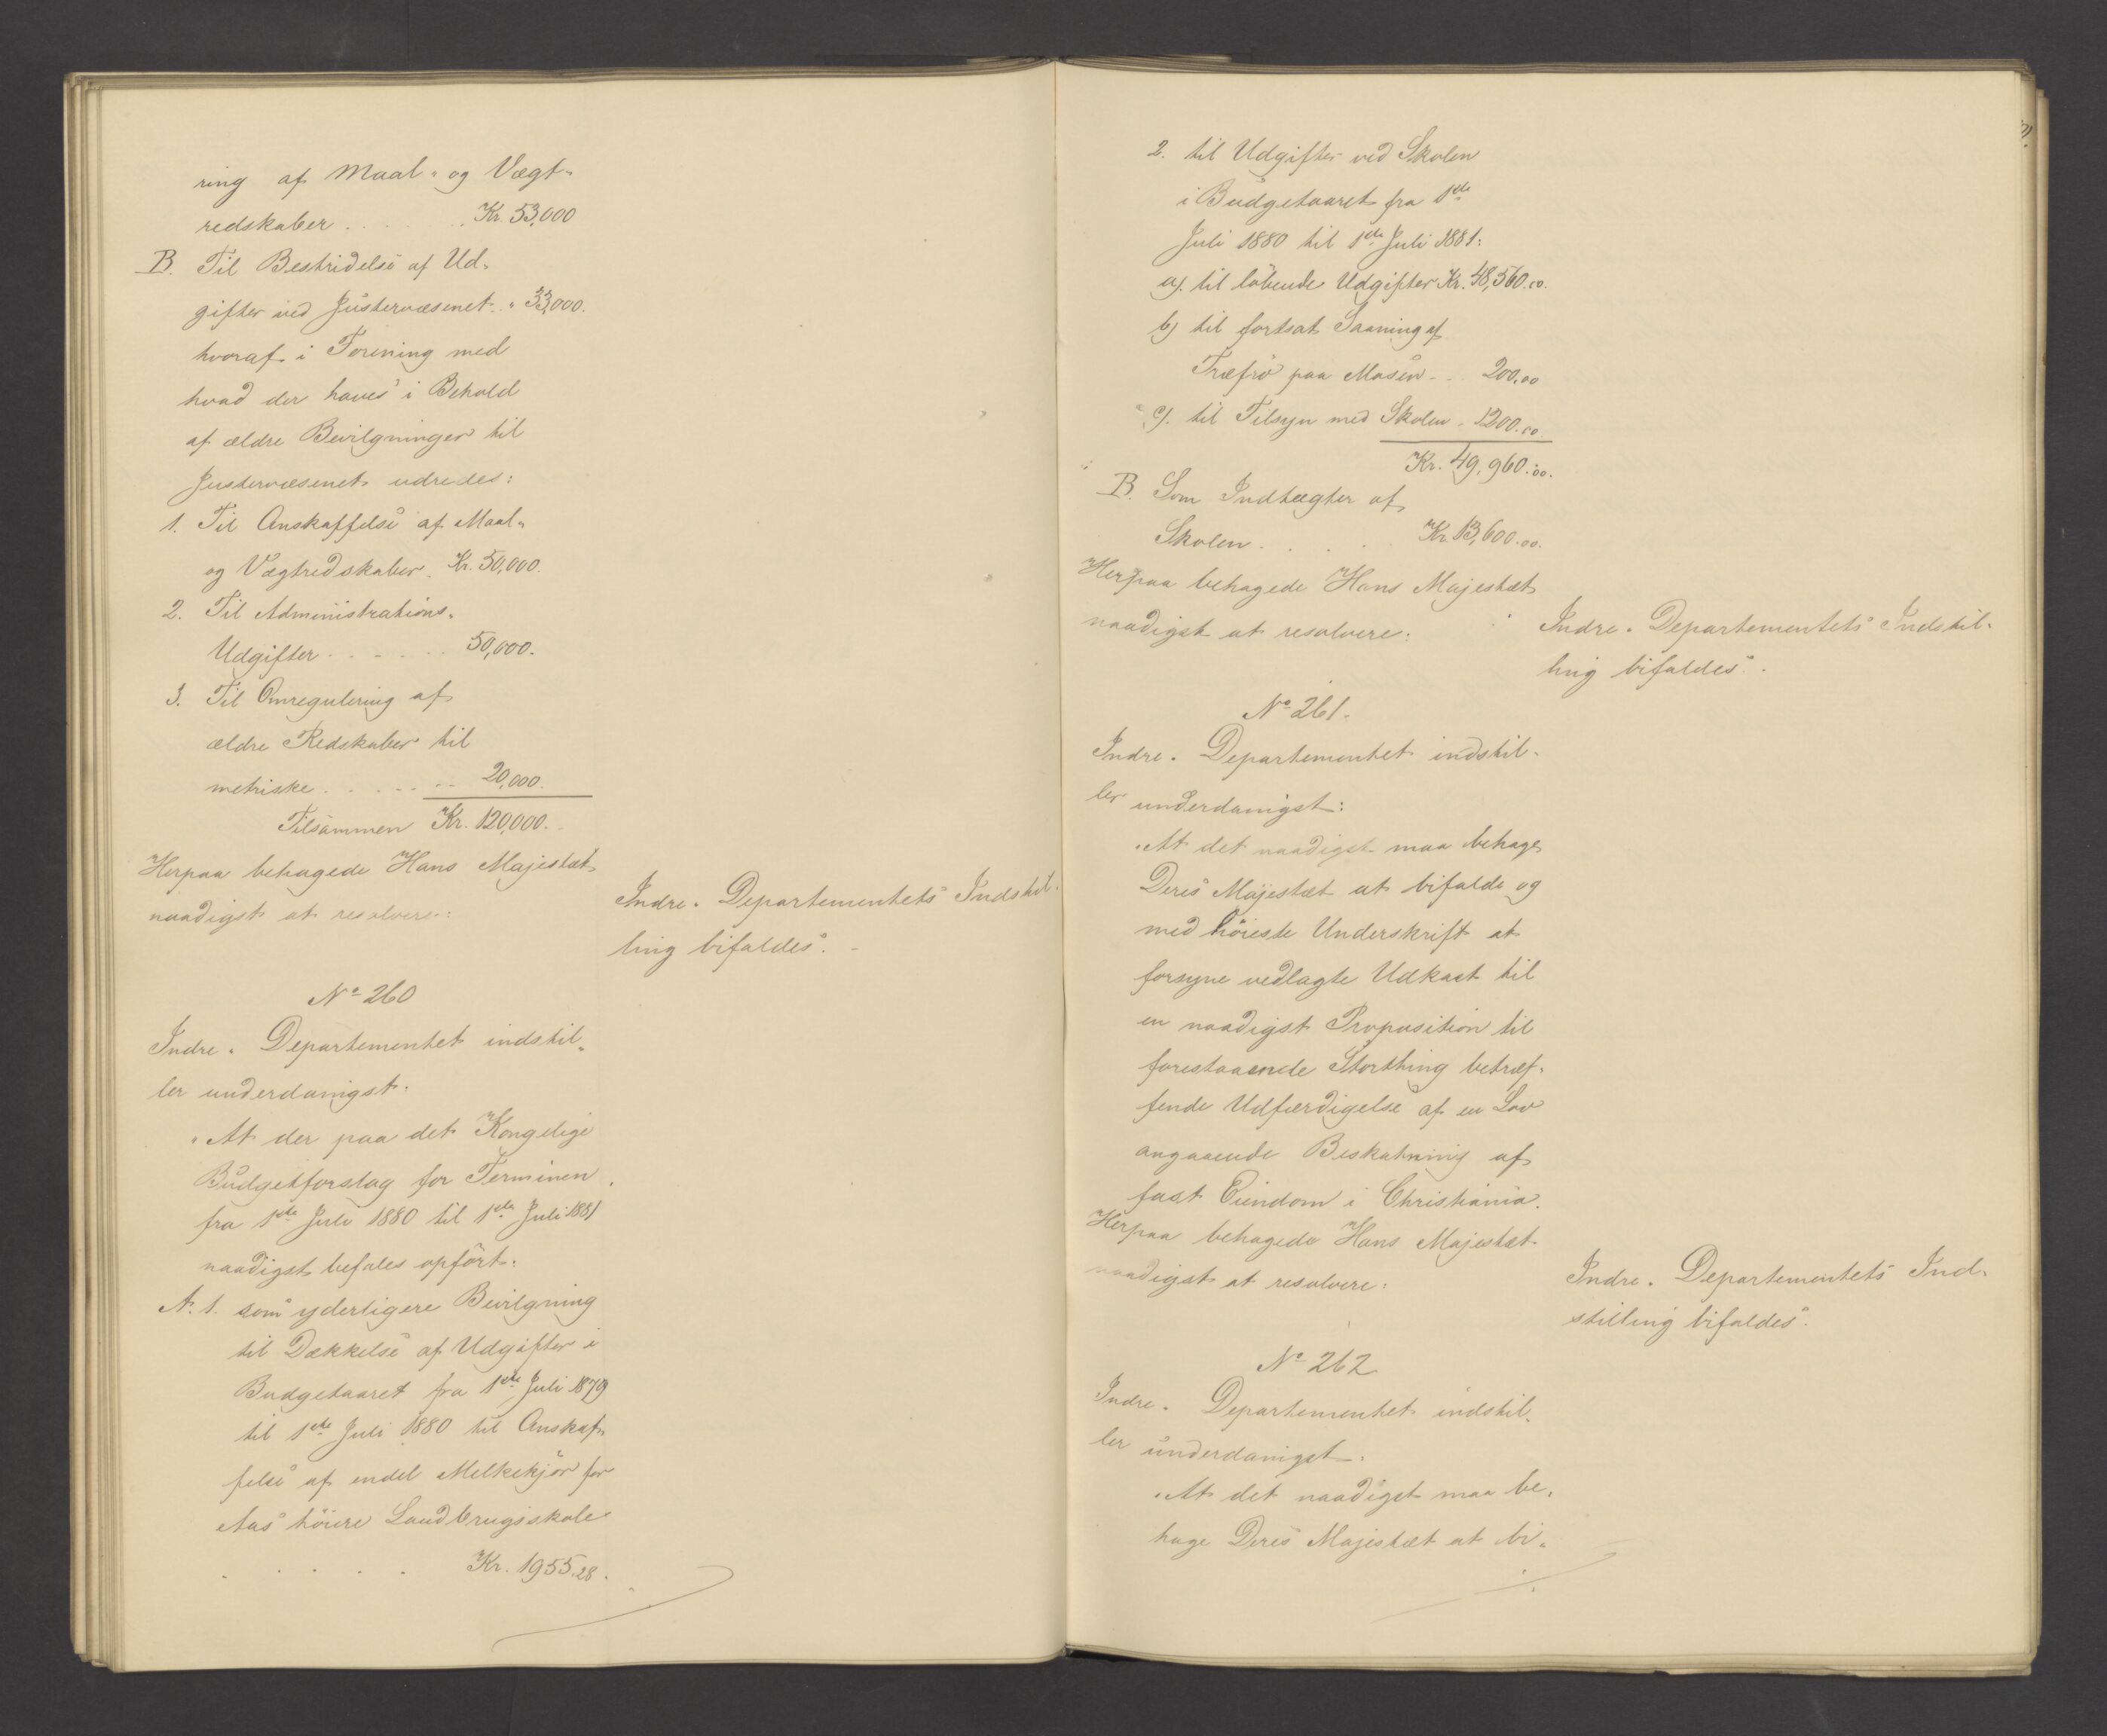 ring af Maal- og Vægt-
redskaber . . . . . . Kr. 53,000
B. Til Bestridelse af Ud-
gifter ved Justervæsenet . " 33,000.
hvoraf i Forening med
hvad der haves i Behold
af ældre Bevilgninger til
Justervæsenet udredes:
1. Til Anskaffelse af Maal-
og Vægtredskaber . Kr. 50,000.
2. Til Administrations-
Udgifter . . . . . . 50,000.
3. Til Omregulering af
ældre Redskaber til
metriske . . . . . . 20,000.
Tilsammen Kr. 120,000. -
Herpaa behagede Hans Majestæt
naadigst at resolvere:
Indre-Departementets Indstil-
ling bifaldes. -
No 260
Indre-Departementet indstil-
ler underdanigst:
"At der paa det Kongelige
Budgetforslag for Terminen
fra 1ste Juli 1880 til 1ste Juli 1881
naadigst befales opført:
A. 1. som yderligere Bevilgning
til Dækkelse af Udgifter i
Budgetaaret fra 1ste Juli 1879
til 1ste Juli 1880 til Anskaf-
felse af endel Melkekjør for
Aas høiere Landbrugsskole
. . . . . Kr. 1955.28.
2. til Udgifter ved Skolen
i Budgetaaret fra 1ste
Juli 1880 til 1ste Juli 1881:
a). til løbende Udgifter Kr. 48,560.00.
b) til fortsat Saaning af
Træfrø paa Mosen - . 200.00
c). til Tilsyn med Skolen - 1200.00.
Kr. 49,960.00.
B. Som Indtægter af
Skolen . . . . Kr. 13,600.00.
Herpaa behagede Hans Majestæt
naadigst at resolvere:
Indre-Departementets Indstil-
ling bifaldes. -
No 261.
Indre-Departementet indstil-
ler underdanigst:
"At det naadigst maa behage
Deres Majestæt at bifalde og
med høieste Underskrift at
forsyne vedlagte Udkast til
en naadigst Proposition til
forestaaende Storthing betræf-
fende Udfærdigelse af en Lov
angaaende Beskatning af
fast Eiendom i Christiania.
Herpaa behagede Hans Majestæt
naadigst at resolvere:
Indre-Departementets Ind-
stilling bifaldes.
No 262
Indre-Departementet indstil-
ler underdanigst:
"At det naadigst maa be-
hage Deres Majestæt at bi-